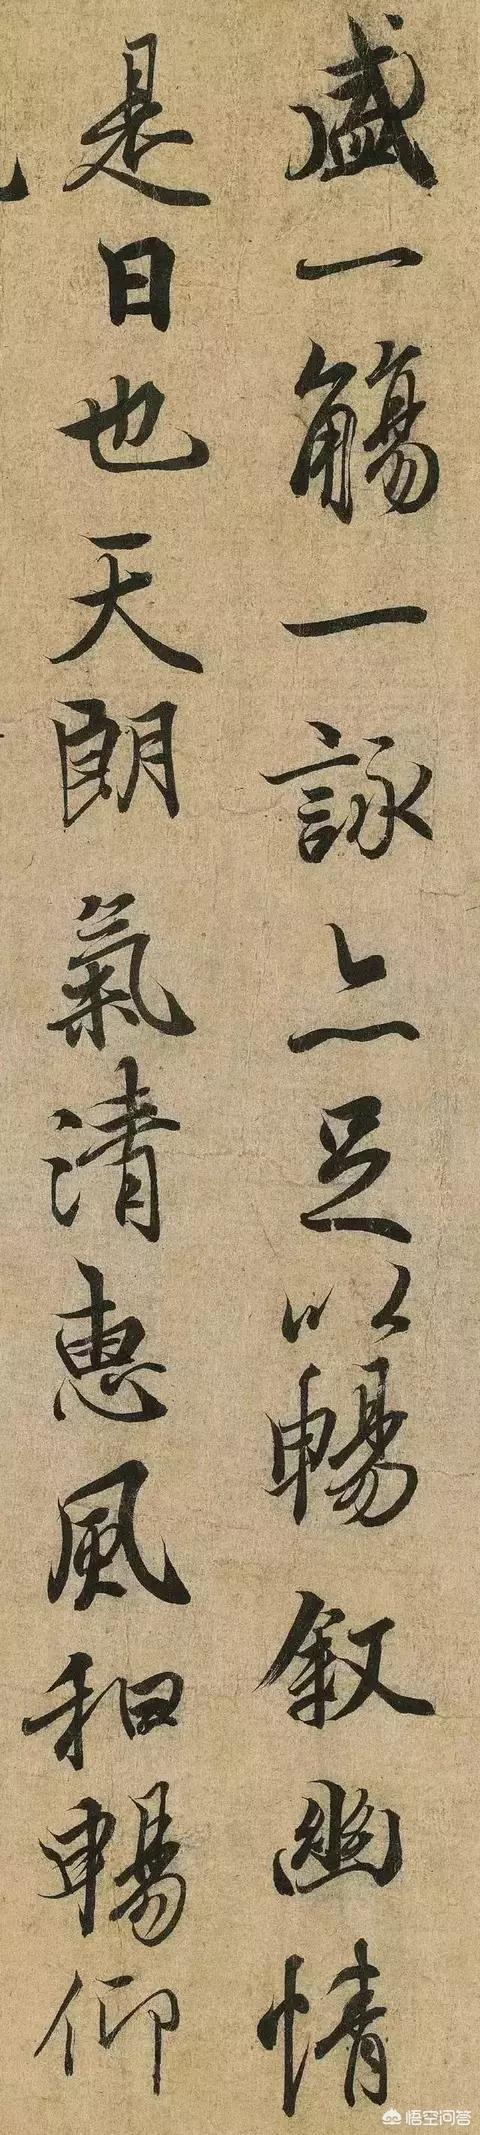 盛一觴一詠亦足以暢叙幽情
是日也天朗氣清惠風和暢仰
悟空问答